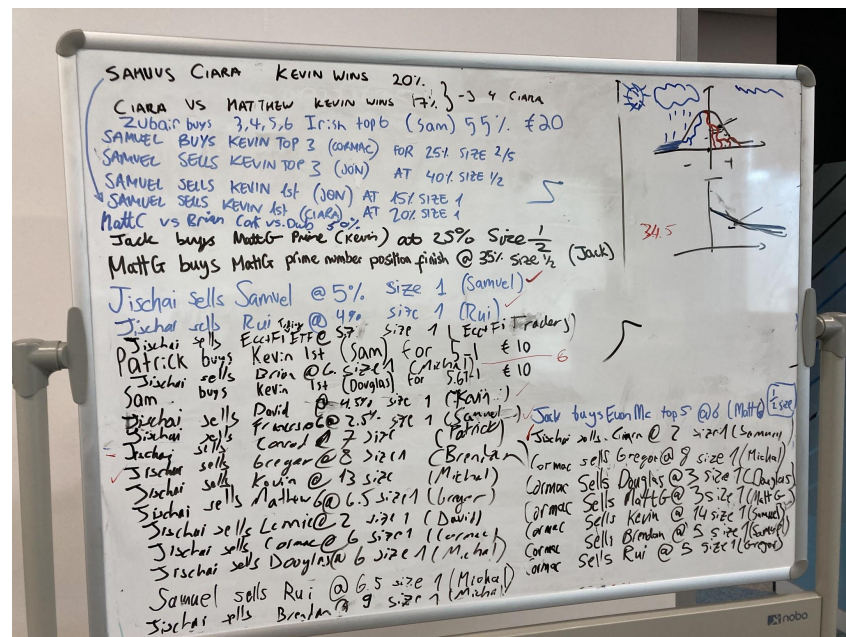 SAMUVS CIARA KEVIN WINS 20%
CIARA VS MATTHEW KEVIN WINS 17% } -> 4 CIARA
Zubair buys 3,4,5,6 Irish top 6 (Sam) 55% €20
SAMUEL BUYS KEVIN TOP 3 (CORMAC) FOR 25% SIZE 2/5
SAMUEL SELLS KEVIN TOP 3 (JON) AT 40% SIZE 1/2
SAMUEL SELLS KEVIN 1st (JON) AT 15% SIZE 1
SAMUEL SELLS KEVIN 1st (CIARA) AT 20% SIZE 1
MattC vs Brian Cork vs. Dub 50%
Jack buys MattG Prime (Kevin) at 25% Size 1/2
MattG buys MattG prime number position finish @ 35% size 1/2 (Jack)
Jischai sells Samuel @ 5% size 1 (Samuel)
Jischai sells Rui @ 4% size 1 (Rui)
Jischai sells size 1 (Traders)
Patrick buys Kevin 1st (Sam) for 5-1 €10
Jischai sells Brian @ 6. size 1 (Michal) 6
Sam buys Kevin 1st (Douglas) for €10
Jischai sells David @ 4.5% size 1 (Kevin)
Jischai sells @ 2.5% size 1 (Samuel)
Jischai sells Conrad @ 7 size (Patrick)
Jischai sells Gregor @ 8 size 1 (Brendan)
Jischai sells Kevin @ 13 size (Michal)
Jischai sells Mathew G @ 6.5 size 1 (Gregor)
Jischai sells @ 2 size 1 (David)
Jischai sells Cormac @ 6 size 1 (Cormac)
Jischai sells Douglas @ 6 size 1 (Michal)
Samuel sells Rui @ 6.5 size 1 (Michal)
Jischai sells Brendan @ 9 size 1 (Michal)
34.5
Jack buys EuanMc top 5 @ 6 (MattG) 1/2 size
Jischai sells Ciara @ 2 size 1 (Samuel)
Cormac sells Gregor @ 8 size 1 (Michal)
Cormac sells Douglas @ 3 size 1 (Douglas)
Cormac sells MattG @ 3 size 1 (MattG)
Cormac sells Kevin @ 14 size 1 (Samuel)
Cormac sells Brendan @ 5 size 1 (Samuel)
Cormac sells Rui @ 5 size 1 (Gregor)
nobo